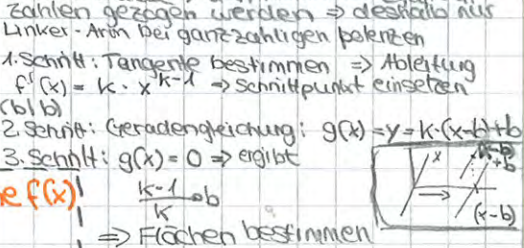 zahlen gezogen werden ⇒ deshalb nur
Linker-Arm bei ganzzahligen potenzen
1. Schritt: Tangente bestimmen ⇒ Ableitung
f'(x) = k · x^(k-1) ⇒ Schnittpunkt einsetzen
(b|b)
2. Schritt: Geradengleichung: g(x) = y = k·(x-b)+b
3. Schritt: g(x) = 0 ⇒ ergibt
e f(x)
(k-1)/k · b
x
(x-b)
⇒ Flächen bestimmen